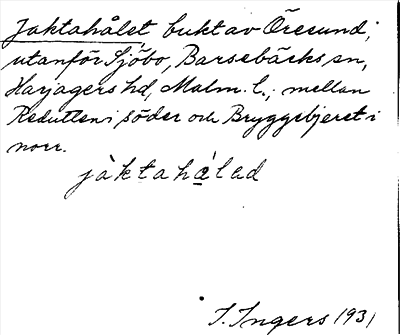 Jaktahålet, bukt av Öresund;
utanför Sjöbo, Barsebäcks sn,
Harjagers hd, Malm. l.; mellan
Redutten i söder och Bryggebjeret i
norr.
jàktahálad
I. Ingers 1931